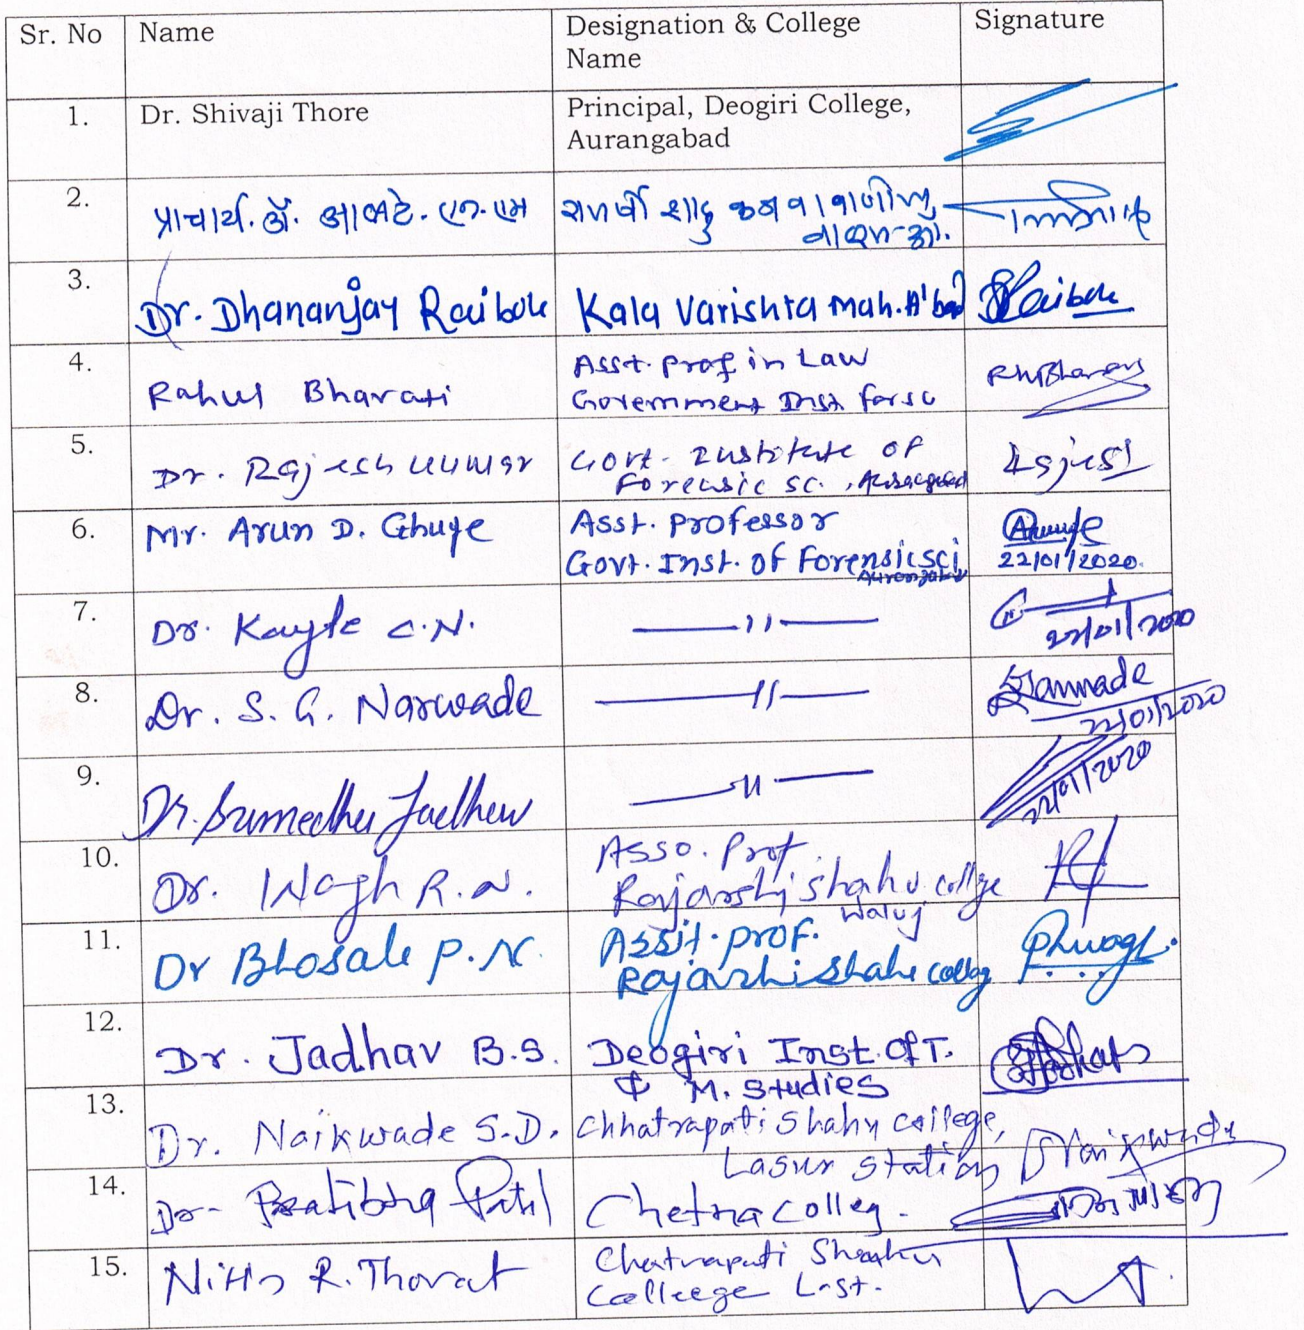 Sr. No Name Designation & College Signature
Name
1. Dr. Shivaji Thore Principal, Deogiri College,
Aurangabad
2. प्राचार्य. डॉ. आपटे. एल. एम
3. Dr. Dhananjay Raibole Kala Varishta Mah. A'bad
4. Rahul Bharati Asst. prof in Law
Government Inst forsc
5. Dr. Rajesh Kumar Govt. Institute of Rajesh
Forensic sc.,
6. Mr. Arun D. Ghuge Asst. professor
Govt. Inst. of Forensic sci 22/01/2020.
Aurangabad
7. Dr. Kayte C.N. —11— 22/01/2020
8. Dr. S. G. Narwade —11— 22/01/2020
9. Dr. Sumedha Jadhav —11— 22/01/2020
10. Dr. Wagh R. N. Asso. Prof.
Rajarshi Shahu college
Waluj
11. Dr Bhosale P. N. Assit. prof.
Rajarshi Shahu colleg
12. Dr. Jadhav B.S. Deogiri Inst. Of T.
& M. Studies
13. Dr. Naikwade S.D. Chhatrapati Shahu College,
Lasur station Naikwade
14. Dr- Pratibha Patil Chetna Colleg.
15. Nitin R. Thorat Chatrapati Shahu
Colleege L-st.